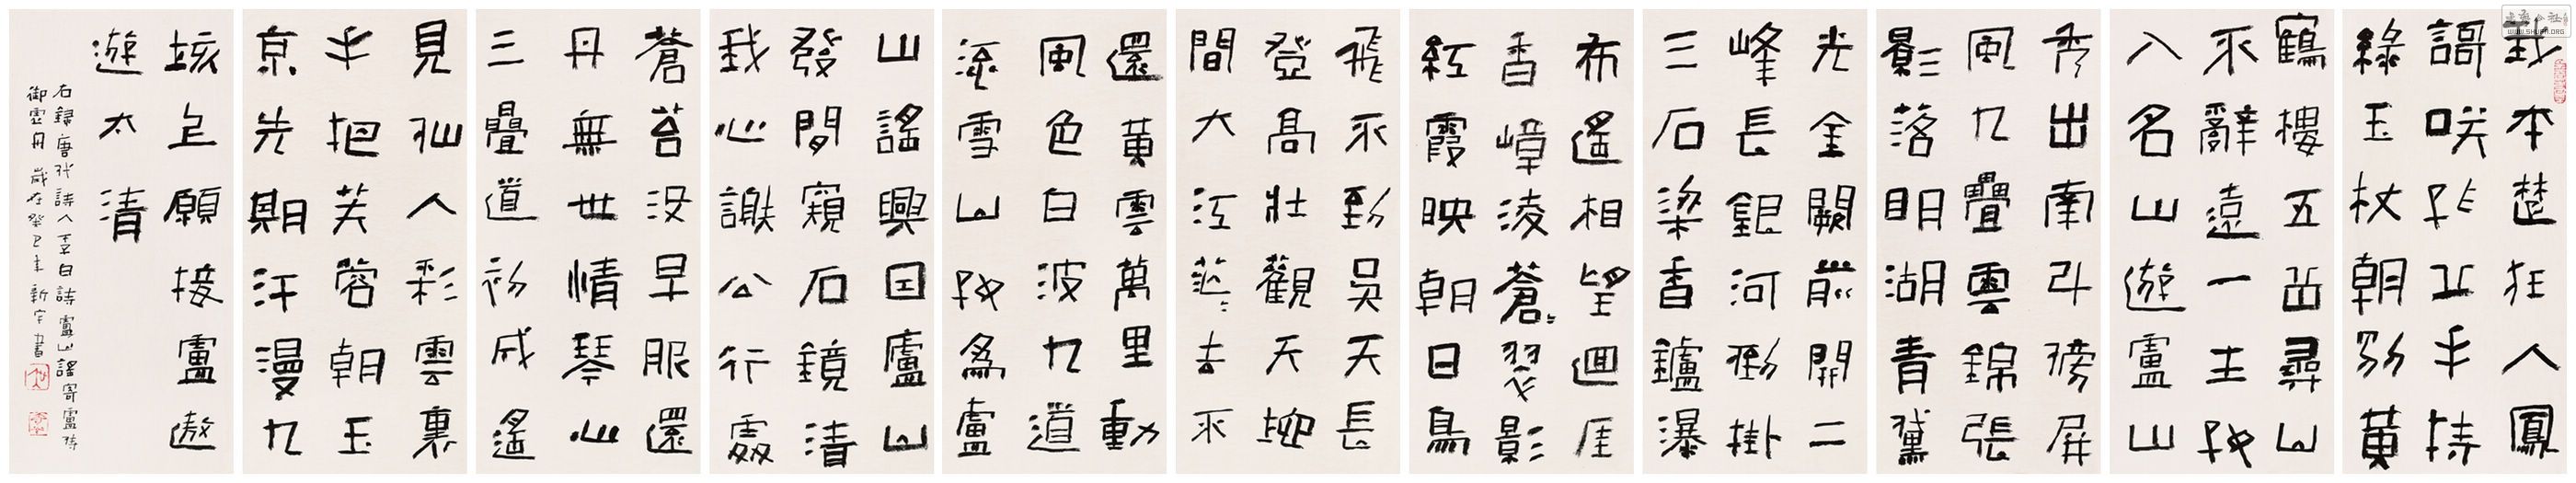 我本楚狂人鳳
謌咲孔丘手持
綠玉杖朝別黃
鶴樓五岳尋山
不辭遠一生好
入名山遊廬山
秀出南斗傍屏
風九疊雲錦張
影落明湖青黛
光金闕前開二
峰長銀河倒掛
三石梁香鑪瀑
布遙相望迴厓
沓嶂凌蒼〻翠影
紅霞映朝日鳥
飛不到吳天長
登高壯觀天地
間大江茫〻去不
還黃雲萬里動
風色白波九道
流雪山好為廬
山謠興因廬山
發閒窺石鏡清
我心謝公行處
蒼苔沒早服還
丹無世情琴心
三疊道初成遙
見仙人彩雲裏
手把芙蓉朝玉
京先期汗漫九
垓上願接盧敖
遊太清
右錄唐代詩人李白詩廬山謠寄盧侍
御虛舟 歲在癸巳年新宇書
WWW.SHUFA.ORG